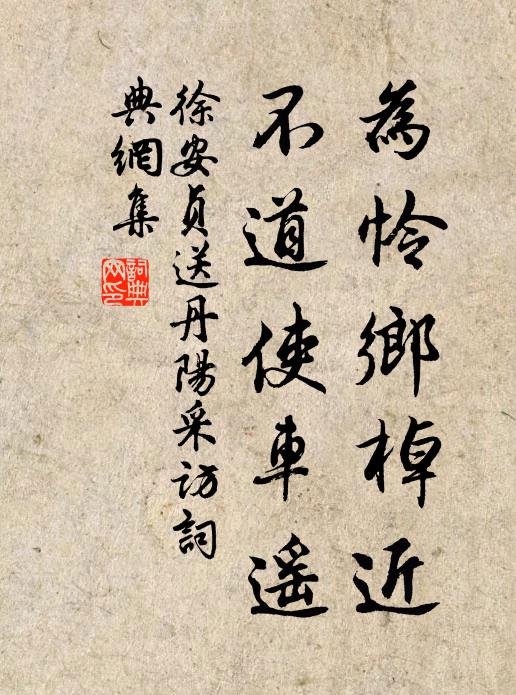 為怜鄉棹近
不道使車遥
徐安貞送丹陽采访詞
典網集
詞典
网印